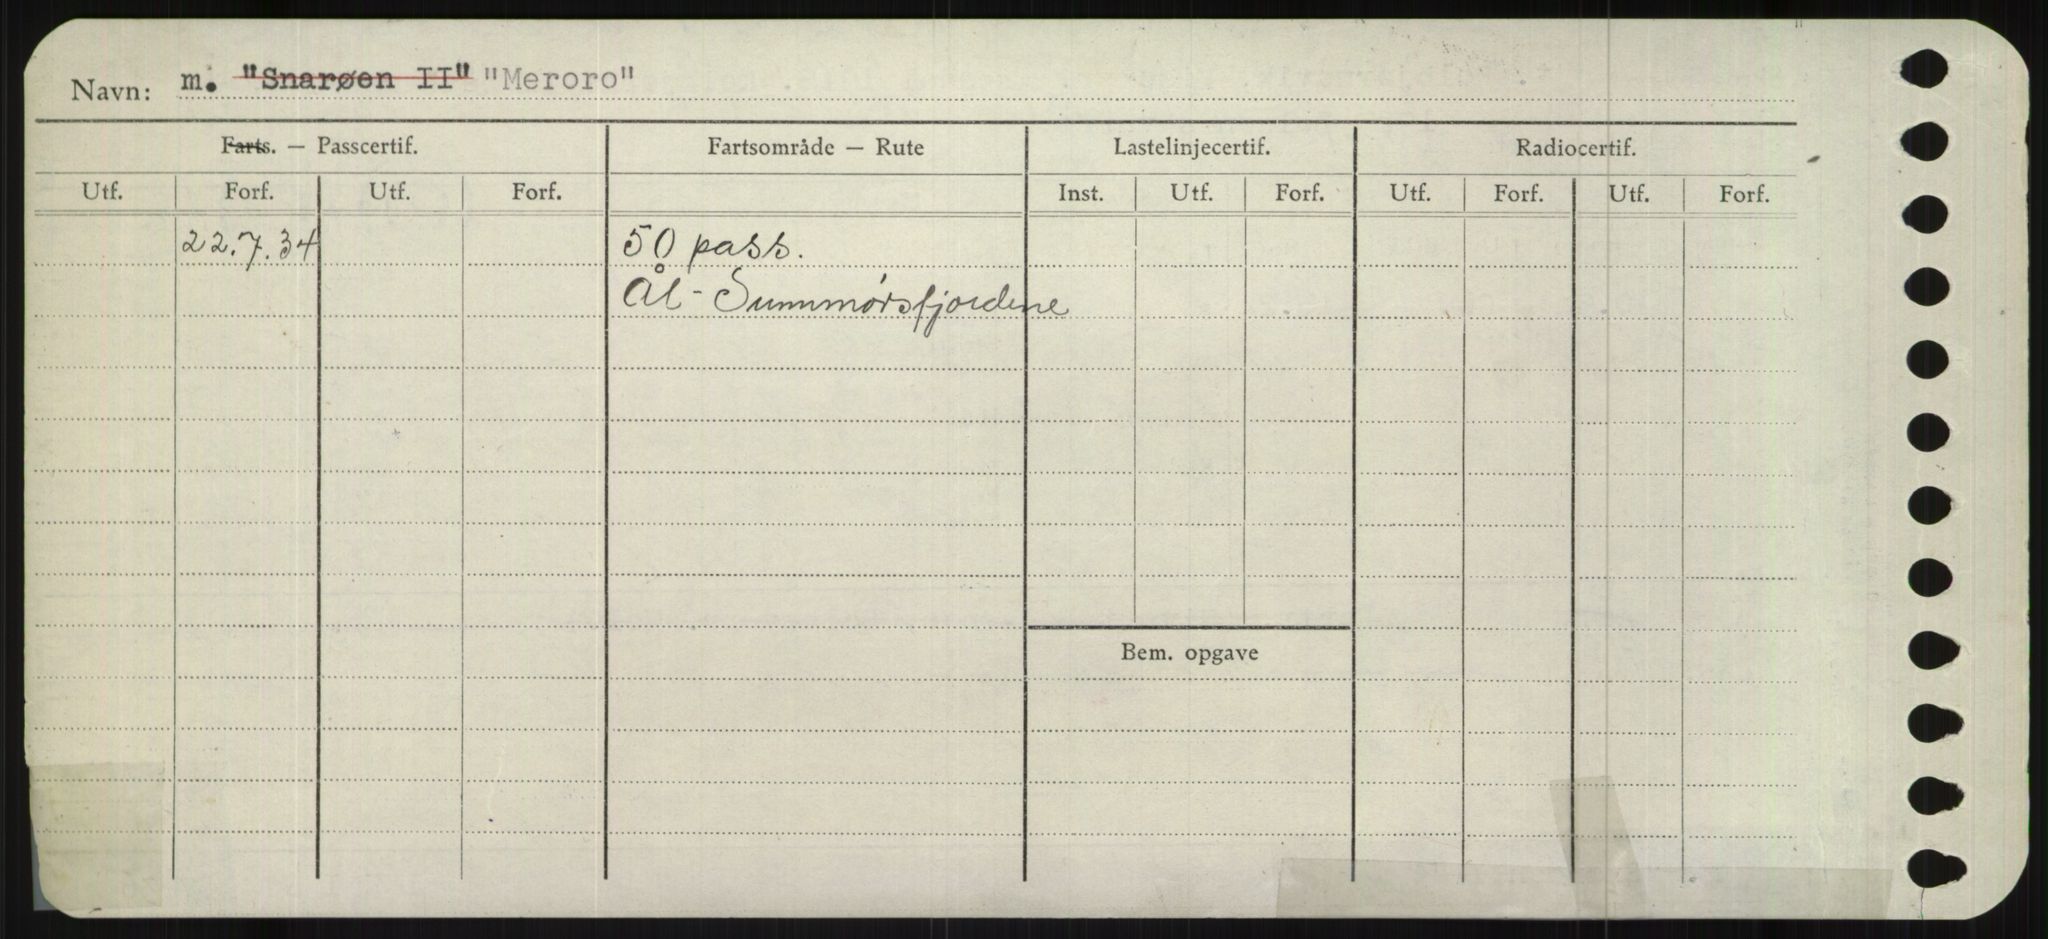 Navn: m. "Snarøen II" "Meroro"
Farts. — Passcertif. Fartsområde — Rute Lastelinjecertif. Radiocertif.
Utf. Forf. Utf. Forf. Inst. Utf. Forf. Utf. Forf. Utf. Forf.
22.7.34 50 pass.
Ål - Sunnmørsfjordene
Bem. opgave